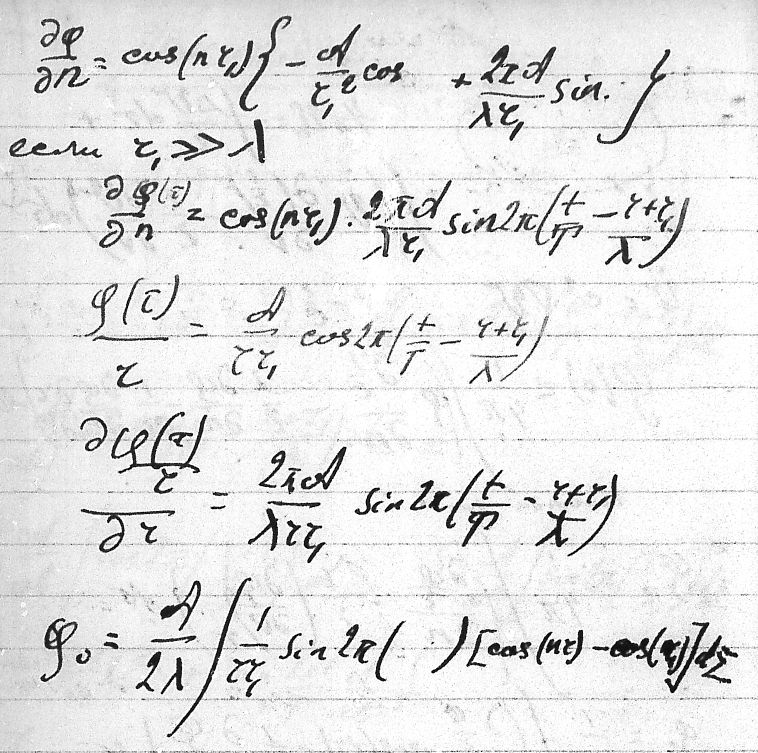 ∂φ/∂n = cos(nr₁) { − A/r₁² cos + 2πA/λr₁ sin. }
если r₁ ≫ λ
∂φ(τ)/∂n = cos(nr₁) · 2πA/λr₁ sin2π(t/T − r+r₁/λ)
φ(τ)/r = A/rr₁ cos2π(t/T − r+r₁/λ)
∂ φ(τ)/r / ∂r = 2πA/λrr₁ sin2π(t/T − r+r₁/λ)
φ₀ = A/2λ ∫ 1/rr₁ sin2π( .. ) [cos(nr) − cos(nr₁)]dΣ